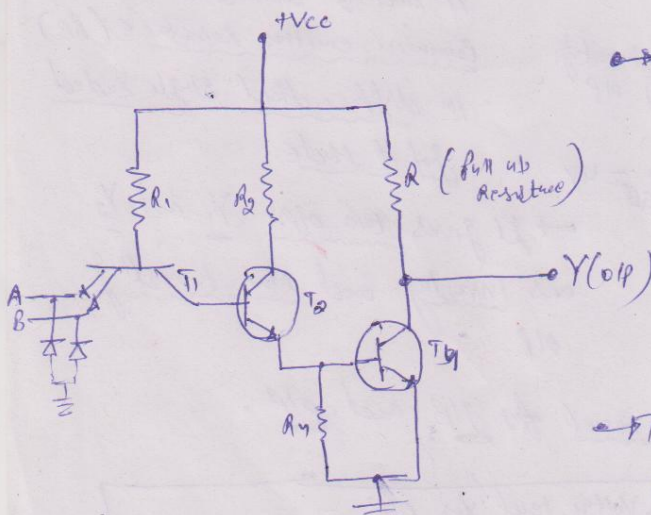 +Vcc
R1
R2
R (pull up
Resistance)
A
B
T1
T2
Y(o/p)
T4
R4